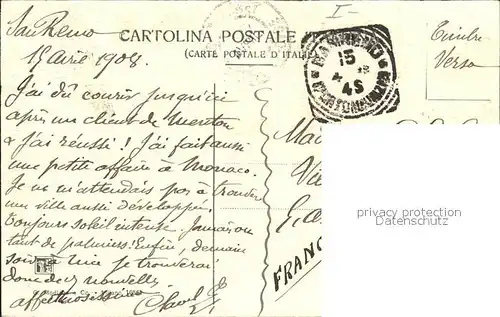 San Remo
15 Avril 1908.
CARTOLINA POSTALE
(CARTE POSTALE D'ITALIE)
I-
Timbre
Verso
15
4
4S
J'ai dû courir jusqu'ici
après un client de Menton
& j'ai réussi! J'ai fait aussi
une petite affaire à Monaco.
Je ne m'attendais pas à trouver
une ville aussi développée.
toujours soleil intense. Jamais vu
tant de palmiers! Enfin, demain
soir à Nice je trouverai
donc de nouvelles
affectueusement
privacy protection
only watermark
FRANC